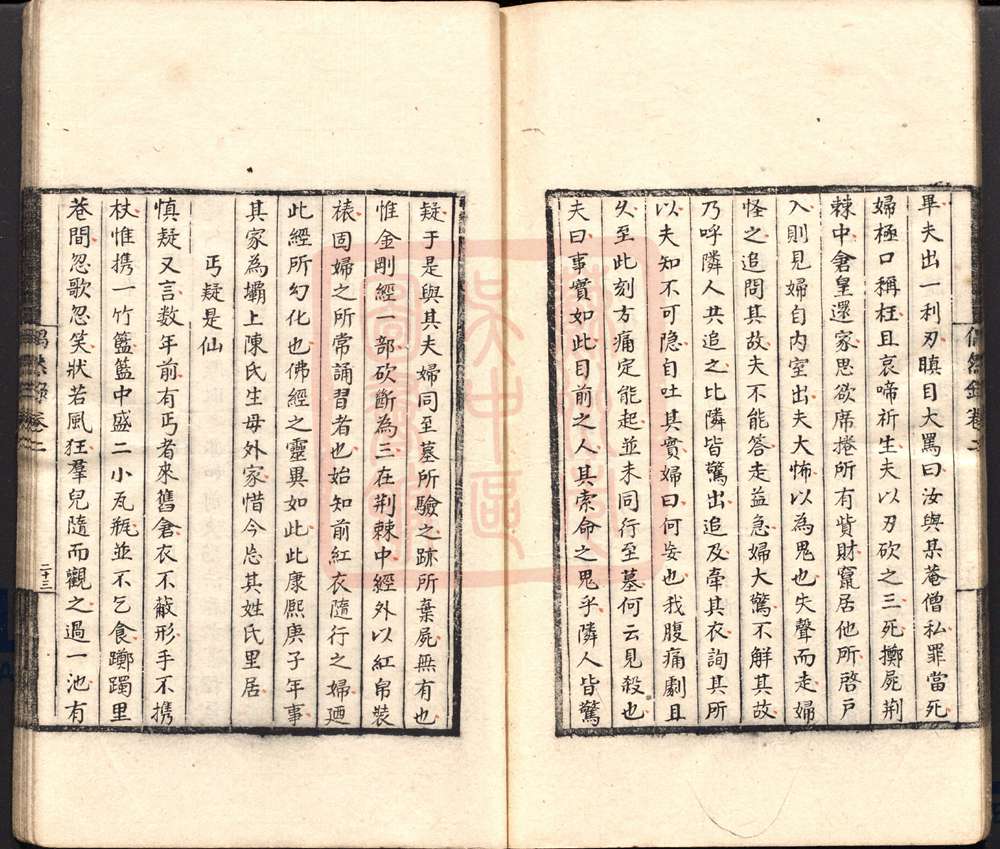 畢夫出一利刃瞋目大罵曰汝與某菴僧私罪當死
婦極口稱枉且哀啼祈生夫以刃砍之三死擲屍荆
棘中倉皇還家思欲席捲所有貲財竄居他所啓戸
入則見婦自內室出夫大怖以為鬼也失聲而走婦
怪之追問其故夫不能答走益急婦大驚不解其故
乃呼隣人共追之比隣皆驚出追及牽其衣詢其所
以夫知不可隐自吐其實婦曰何妄也我腹痛劇且
久至此刻方痛定能起並未同行至墓何云見殺也
夫曰事實如此目前之人其索命之鬼乎隣人皆驚
偶然錄卷二
疑于是與其夫婦同至墓所驗之跡所棄屍無有也
惟金剛經一部砍斷為三在荆棘中經外以紅帛裝
裱固婦之所常誦習者也始知前紅衣隨行之婦廼
此經所幻化也佛經之靈異如此此康熙庚子年事
其家為壩上陳氏生母外家惜今忘其姓氏里居
丐疑是仙
慎疑又言数年前有丐者來舊倉衣不蔽形手不携
杖惟携一竹籃籃中盛二小瓦瓶並不乞食躑躅里
巷間忽歌忽笑狀若風狂羣兒隨而觀之過一池有
偶然錄卷二
二十三